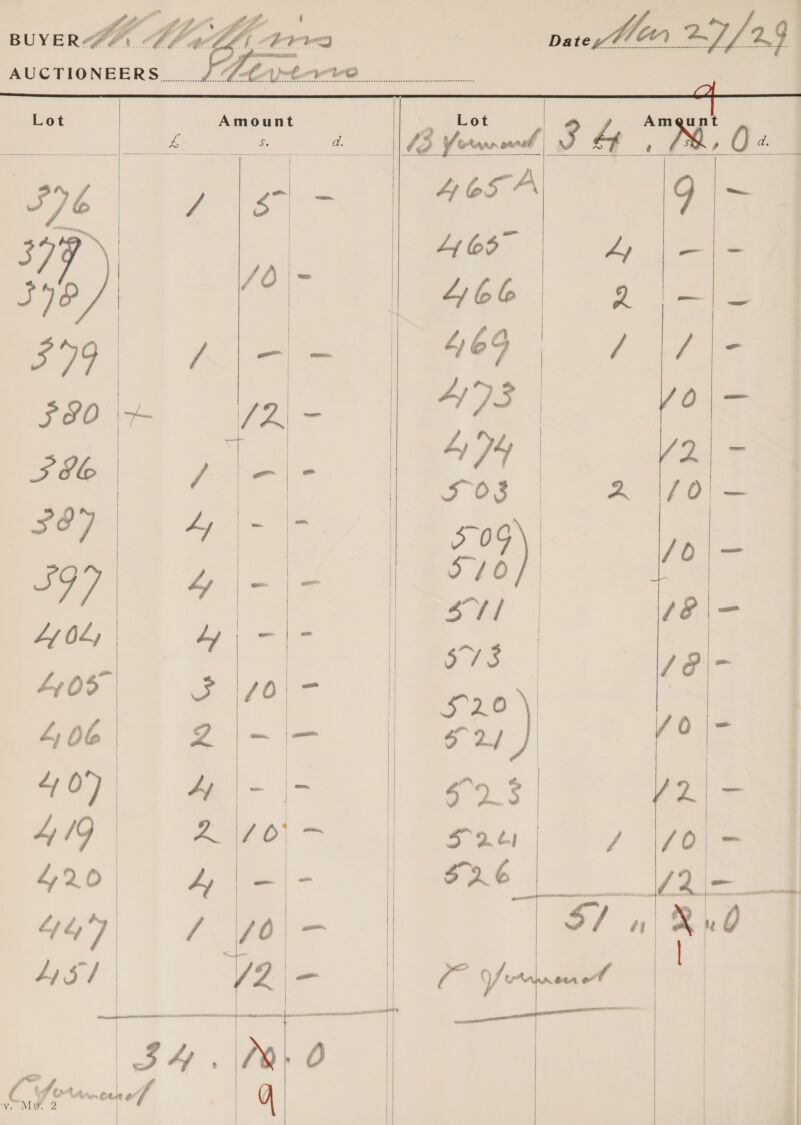 BUYER W. Wilkins
Date, Mar 27/29
AUCTIONEERS Stevens
Lot Amount
£ s. d.
376 1 5 -
377
378 10 -
379 1 - -
380 + 12 -
386 1 - -
387 4 - -
397 4 - -
404 4 - -
405 3 10 -
406 2 - -
407 4 - -
419 2 10 -
420 4 - -
447 1 10 -
451 12 -
34 . 10 . 0
9
C Forward
v. Mw. 2
Lot Amount
9
B Forward 34 , 10 , 0 d.
465A 9 -
465 4 - -
466 2 - -
469 1 1 -
473 10 -
474 12 -
503 2 10 -
509
510 10 -
511 18 -
513 18 -
520
521 10 -
523 12 -
524 1 10 -
526 12 -
51 " 2 " 0
1
C Forward